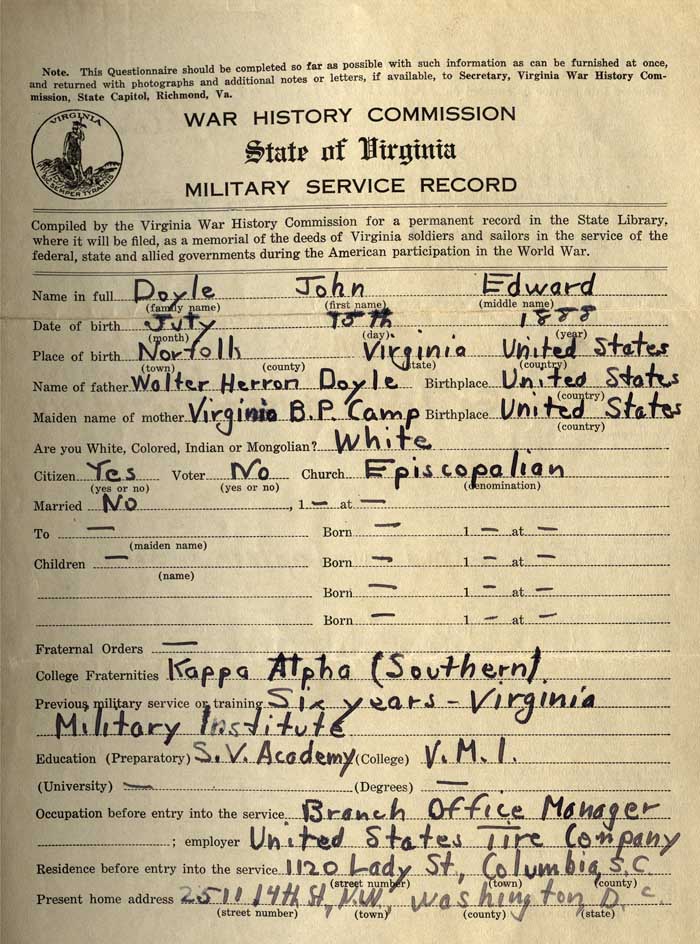 Note. This Questionnaire should be completed so far as possible with such information as can be furnished at once,
and returned with photographs and additional notes or letters, if available, to Secretary, Virginia War History Com-
mission, State Capitol, Richmond, Va.
VIRGINIA
SIC SEMPER TYRANNIS
WAR HISTORY COMMISSION
State of Virginia
MILITARY SERVICE RECORD
Compiled by the Virginia War History Commission for a permanent record in the State Library,
where it will be filed, as a memorial of the deeds of Virginia soldiers and sailors in the service of the
federal, state and allied governments during the American participation in the World War.
Name in full Doyle John Edward
(family name) (first name) (middle name)
Date of birth July 18 88
(month) (day) (year)
Place of birth Norfolk Virginia United States
(town) (county) (state) (country)
Name of father Walter Herron Doyle Birthplace United States
(country)
Maiden name of mother Virginia B.P. Camp Birthplace United States
(country)
Are you White, Colored, Indian or Mongolian? White
Citizen Yes Voter No Church Episcopalian
(yes or no) (yes or no) (denomination)
Married No, 1 — at —
To — Born — 1 — at —
(maiden name)
Children — Born — 1 — at —
(name)
Born — 1 — at —
Born — 1 — at —
Fraternal Orders —
College Fraternities Kappa Alpha (Southern).
Previous military service or training Six years - Virginia
Military Institute
Education (Preparatory) S.V. Academy (College) V.M.I.
(University) — (Degrees) —
Occupation before entry into the service Branch Office Manager
; employer United States Tire Company
Residence before entry into the service 1120 Lady St., Columbia, S.C.
(street number) (town) (county)
Present home address 2511 14th St., N.W., Washington D.C.
(street number) (town) (county) (state)